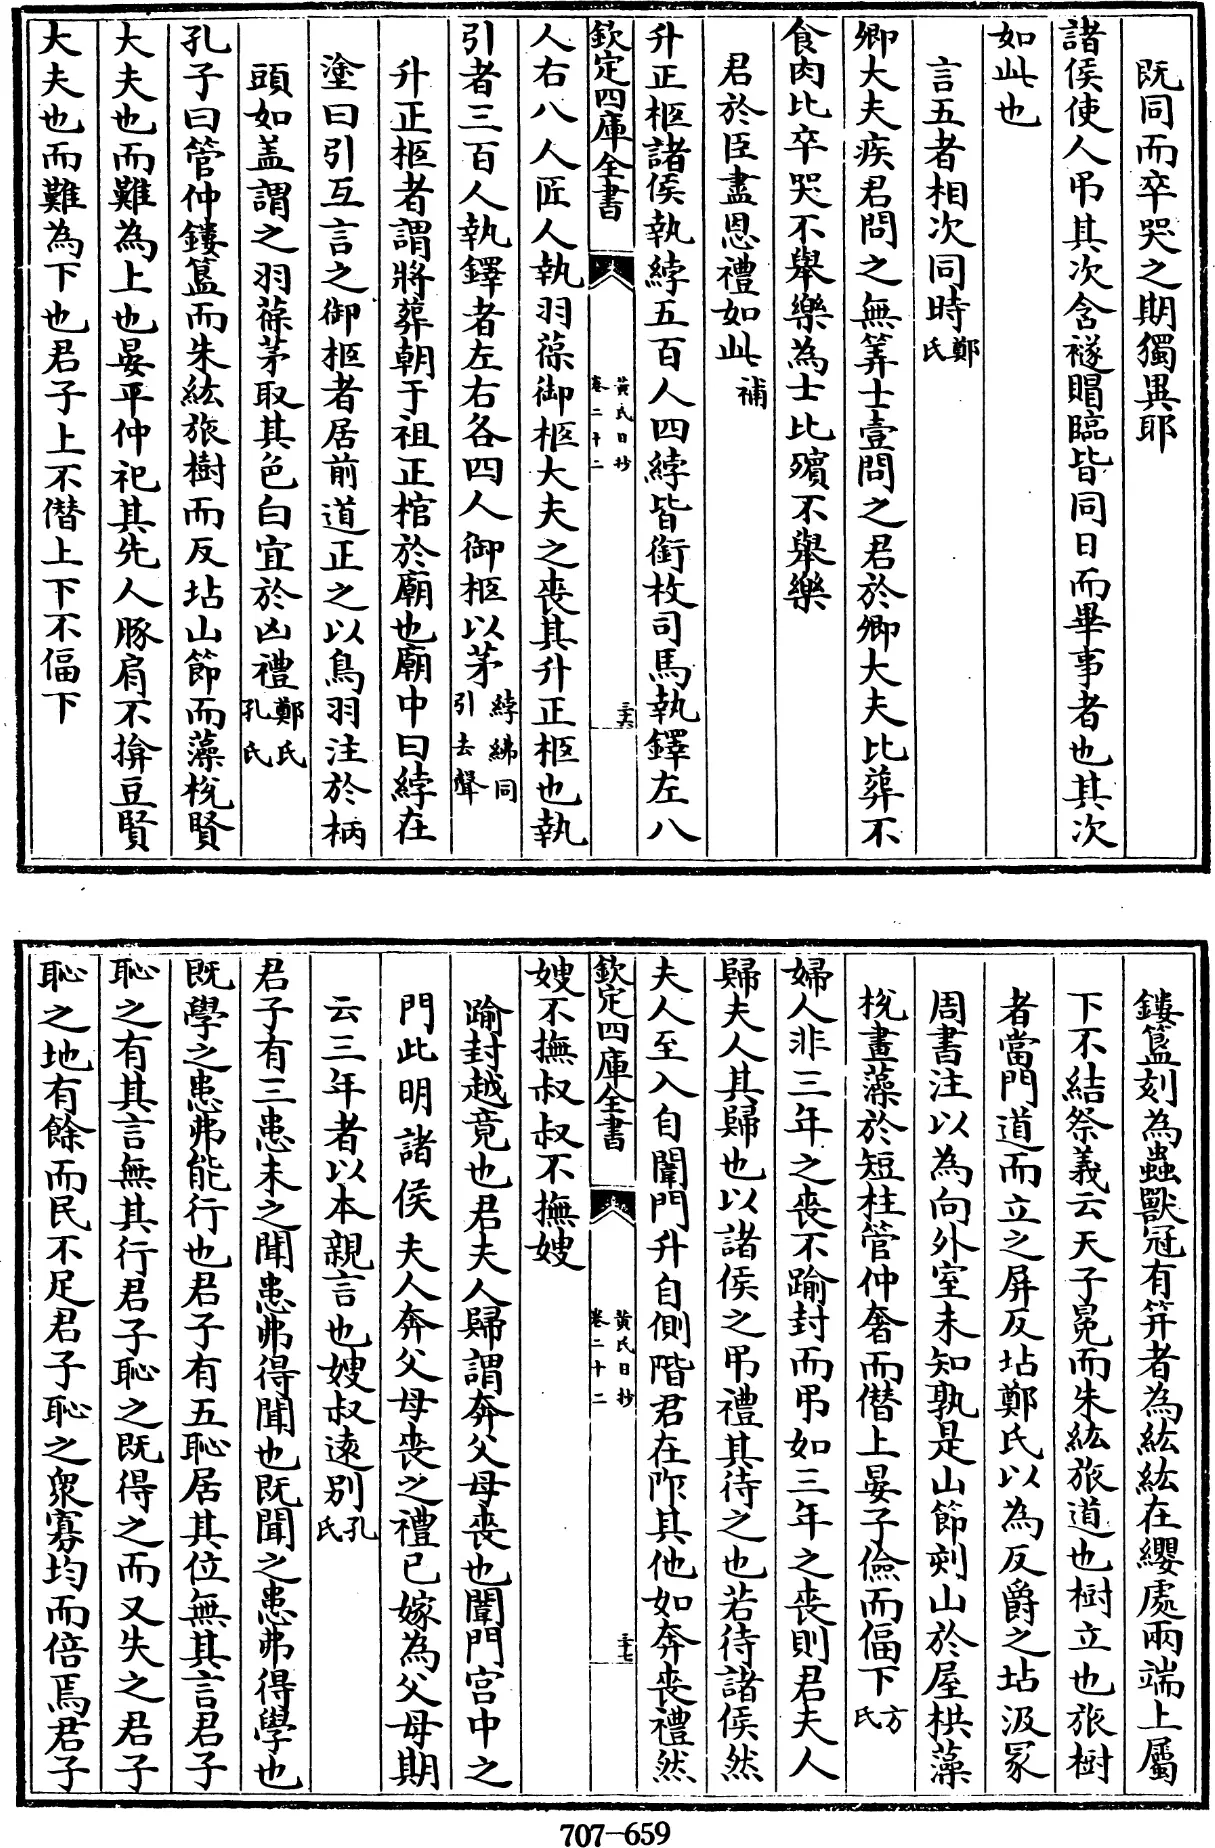 既同而卒哭之期獨異耶
諸侯使人弔其次含襚賵臨皆同日而畢事者也其次
如此也
言五者相次同時鄭氏
卿大夫疾君問之無筭士壹問之君於卿大夫比葬不
食肉比卒哭不舉樂為士比殯不舉樂
君於臣盡恩禮如此補
升正柩諸侯執綍五百人四綍皆銜枚司馬執鐸左八
欽定四庫全書
黃氏日抄
卷二十二
三六
人右八人匠人執羽葆御柩大夫之喪其升正柩也執
引者三百人執鐸者左右各四人御柩以茅綍紼同引去聲
升正柩者謂將葬朝于祖正棺於廟也廟中曰綍在
塗曰引互言之御柩者居前道正之以鳥羽注於柄
頭如盖謂之羽葆茅取其色白宜於凶禮鄭氏孔氏
孔子曰管仲鏤簋而朱紘旅樹而反坫山節而藻梲賢
大夫也而難為上也晏平仲祀其先人豚肩不揜豆賢
大夫也而難為下也君子上不僭上下不偪下
鏤簋刻為蟲獸冠有笄者為紘紘在纓處兩端上屬
下不結祭義云天子冕而朱紘旅道也樹立也旅樹
者當門道而立之屏反坫鄭氏以為反爵之坫汲冢
周書注以為向外室未知孰是山節刻山於屋栱藻
梲畫藻於短柱管仲奢而僭上晏子儉而偪下方氏
婦人非三年之喪不踰封而弔如三年之喪則君夫人
歸夫人其歸也以諸侯之弔禮其待之也若待諸侯然
夫人至入自闈門升自側階君在阼其他如奔喪禮然
欽定四庫全書
黃氏日抄
卷二十二
三七
嫂不撫叔叔不撫嫂
踰封越竟也君夫人歸謂奔父母喪也闈門宮中之
門此明諸侯夫人奔父母喪之禮已嫁為父母期
云三年者以本親言也嫂叔遠别孔氏
君子有三患未之聞患弗得聞也既聞之患弗得學也
既學之患弗能行也君子有五恥居其位無其言君子
恥之有其言無其行君子恥之既得之而又失之君子
恥之地有餘而民不足君子恥之衆寡均而倍焉君子
707-659